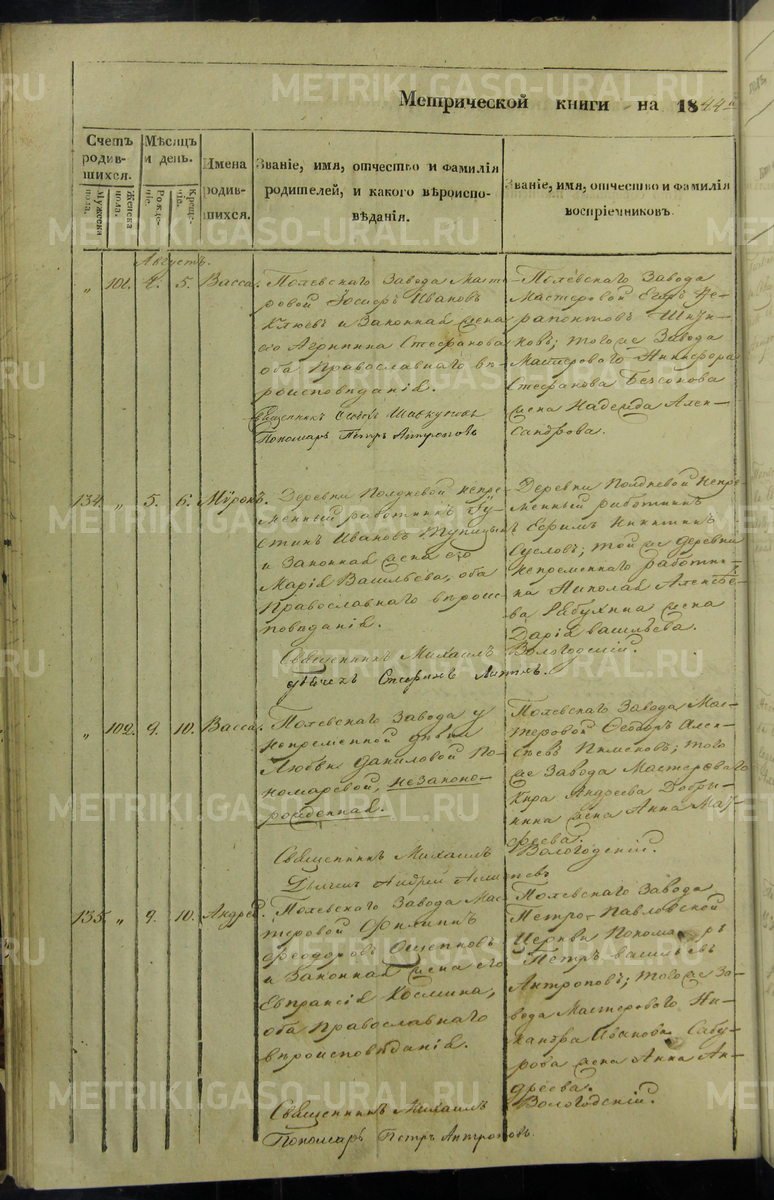 METRIKI.GASO-URAL.RU
Метрической книги на 1844
Счетъ родив-шихся.
Мужеска пола.
Женска пола.
Мѣсяцъ и день.
Рожде-ніе.
Креще-ніе.
Имена родив-шихся.
Званіе, имя, отчество и фамилія
родителей, и какого вѣроиспо-
вѣданія.
Званіе, имя, отчество и фамилія
воспріемниковъ.
Августъ.
„ 101. 2. 5. Васса.
Полевскаго Завода Масте-
ровой Іосифъ Ивановъ
Клюевъ и Законная жена
его Агрипина Стефанова
оба Православнаго вѣ-
роисповѣданія.
Священникъ Шавкуновъ
Пономарь Петръ Антроповъ
Полевскаго Завода
Мастеровой Егоръ Фе-
рапонтовъ
тогоже Завода
Мастероваго Никифора
Стефанова Безсонова
жена Надежда Алек-
сандрова.
134. „ 5. 6. Мѵронъ.
Деревни Полдневой непре-
менный работникъ Іу-
стинъ Ивановъ Тупицынъ
и Законная жена его
Марія Васильева, оба
Православнаго вѣроис-
повѣданія.
Священникъ Михаилъ Вологодскій.
Деревни Полдневой Непре-
менный работникъ
Ефимъ Никитинъ
Сусловъ; той же деревни
непременнаго работни-
ка Николая Алексѣе-
ва Рябухина жена
Дарія Васильева.
„ 102. 9. 10. Васса.
Полевскаго Завода у
непременной дѣвки
Любви Даниловой По-
номаревой, незаконо-
рожденная.
Священникъ Михаилъ Вологодскій.
Дьячекъ Андрей
Полевскаго Завода Мас-
теровой Ѳеодоръ Алек-
сѣевъ Пименовъ; того
же Завода Мастероваго
Кира Андреева Добры-
нина жена Анна Мат-
феева.
135. „ 9. 10. Андрей.
Полевскаго Завода Мас-
теровой Филиппъ
Ѳеодоровъ Ощепковъ
и Законная жена его
Евпраксія Космина,
оба Православнаго
вѣроисповѣданія.
Священникъ Михаилъ Вологодскій.
Пономарь Петръ Антроповъ.
Полевскаго Завода
Петро-Павловской
Церкви Пономарь
Петръ Васильевъ
Антроповъ; тогоже За-
вода Мастероваго Ни-
кандра Иванова Сабу-
рова жена Анна Ан-
дреева.